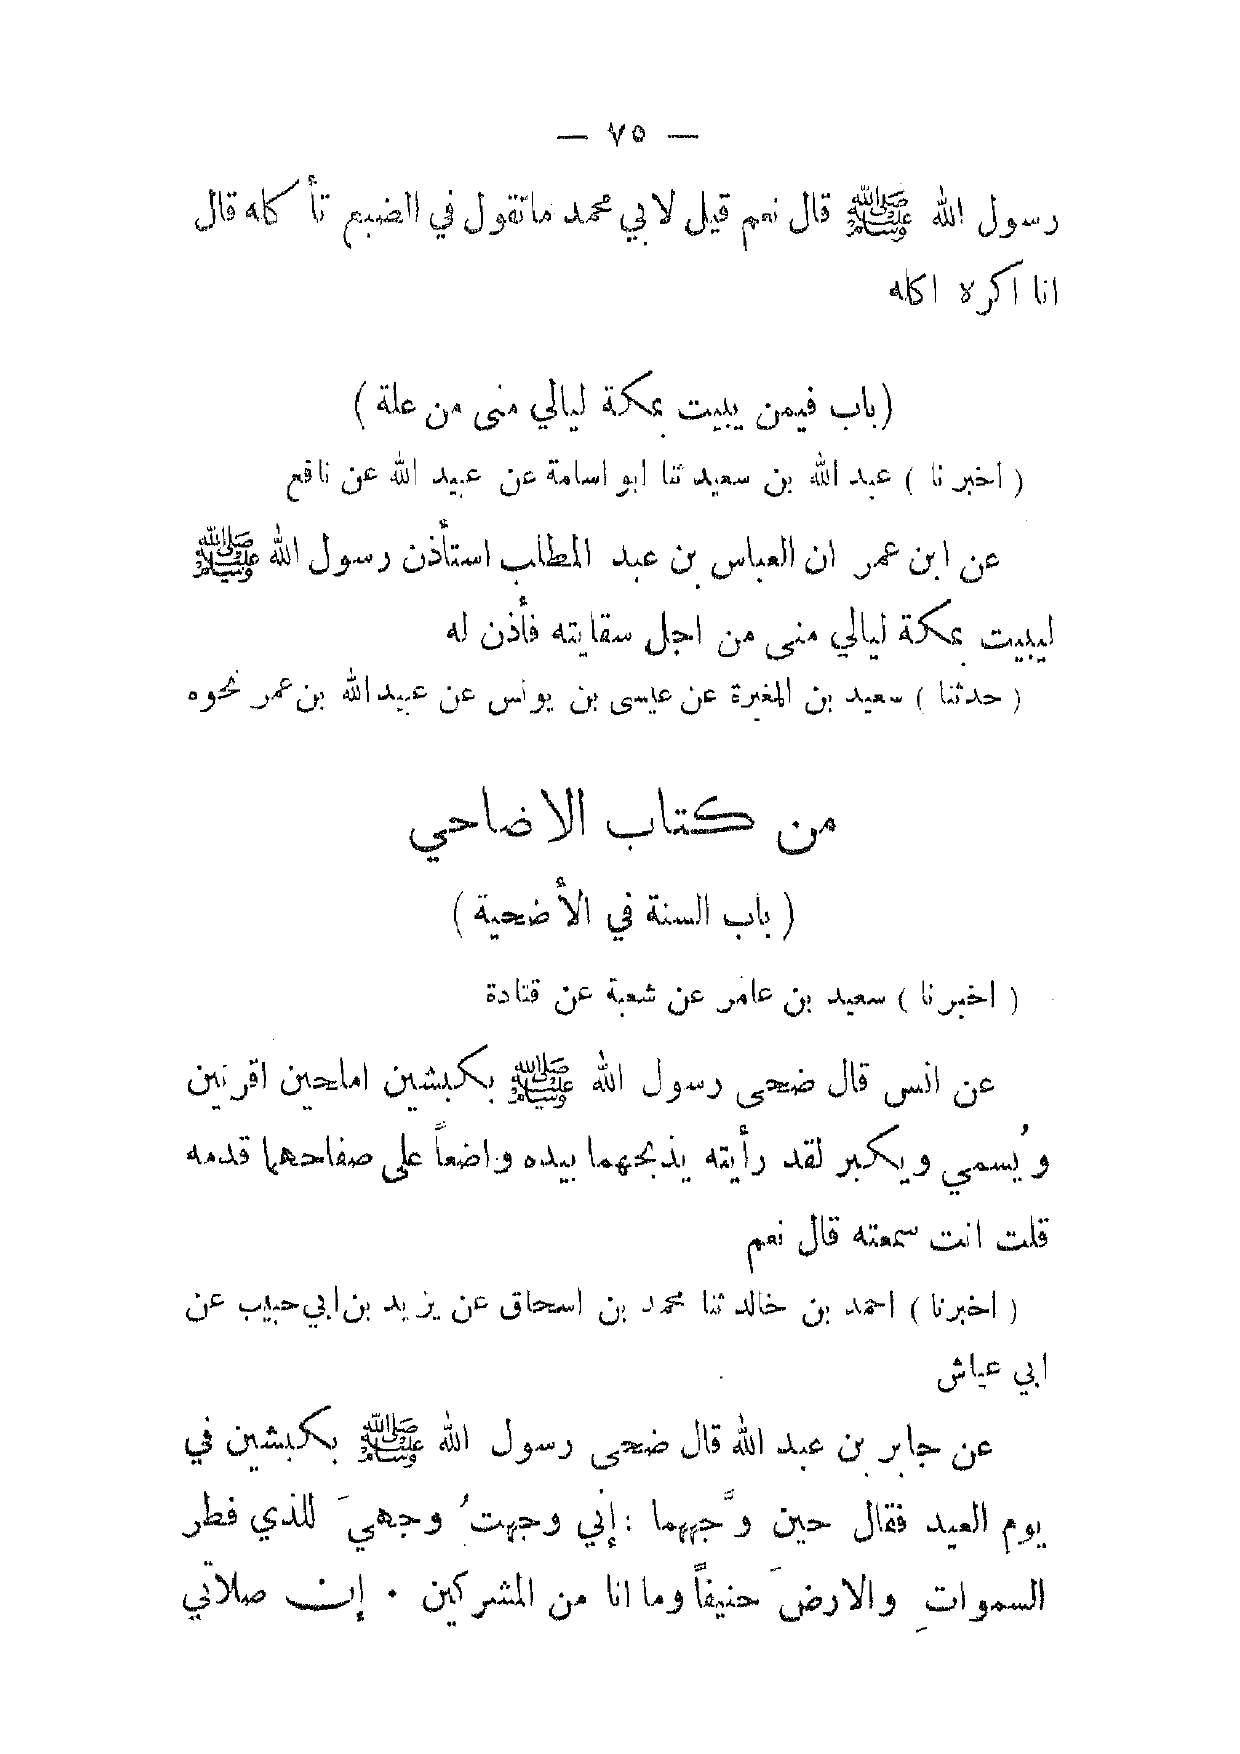 — ٧٥ —
رسول الله ﷺ قال نعم قيل لابي محمد ماتقول في الضبع تأكله قال
انا اكره اكله
(باب فيمن يبيت بمكة ليالي منى من علة)
( اخبرنا ) عبد الله بن سعيد ثنا ابو اسامة عن عبيد الله عن نافع
عن ابن عمر ان العباس بن عبد المطلب استأذن رسول الله ﷺ
ليبيت بمكة ليالي منى من اجل سقايته فأذن له
( حدثنا ) سعيد بن المغيرة عن عيسى بن يونس عن عبيد الله بن عمر نحوه
من كتاب الاضاحي
( باب السنة في الأضحية )
( اخبرنا ) سعيد بن عامر عن شعبة عن قتادة
عن انس قال ضحى رسول الله ﷺ بكبشين املحين اقرنين
ويُسمي ويكبر لقد رأيته يذبحهما بيده واضعاً على صفاحهما قدمه
قلت انت سمعته قال نعم
( اخبرنا ) احمد بن خالد ثنا محمد بن اسحاق عن يزيد بن ابي حبيب عن
ابي عياش
عن جابر بن عبد الله قال ضحى رسول الله ﷺ بكبشين في
يوم العيد فقال حين وجَّههما : إني وجهتُ وجهيَ للذي فطر
السمواتِ والارضَ حنيفاً وما انا من المشركين . إن صلاتي